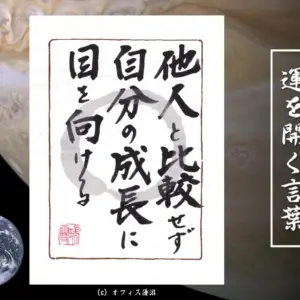 運を開く言葉
他人と比較せず
自分の成長に
目を向ける
(c) オフィス湧泪